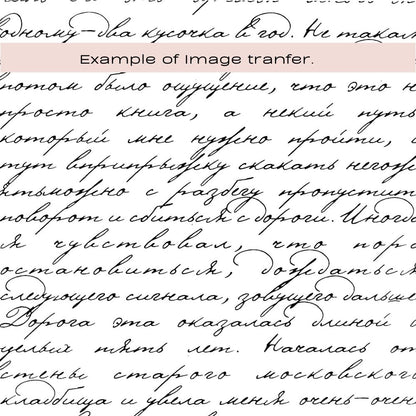 одному-два кусочка в год. Не такая
Example of Image tranfer.
потом было ощущение, что это н
просто книга, а некий путь
который мне нужно пройти, и
тут вприпрыжку скакать негож
ятьможно с разбегу пропустит
поворот и сбиться с дороги. Иногда
я чувствовал, что пора
остановиться, дождаться
следующего сигнала, зовущего дальше
Дорога эта оказалась длиной в
целых пять лет. Началась от
стены старого московского
кладбища и увела меня очень-очен